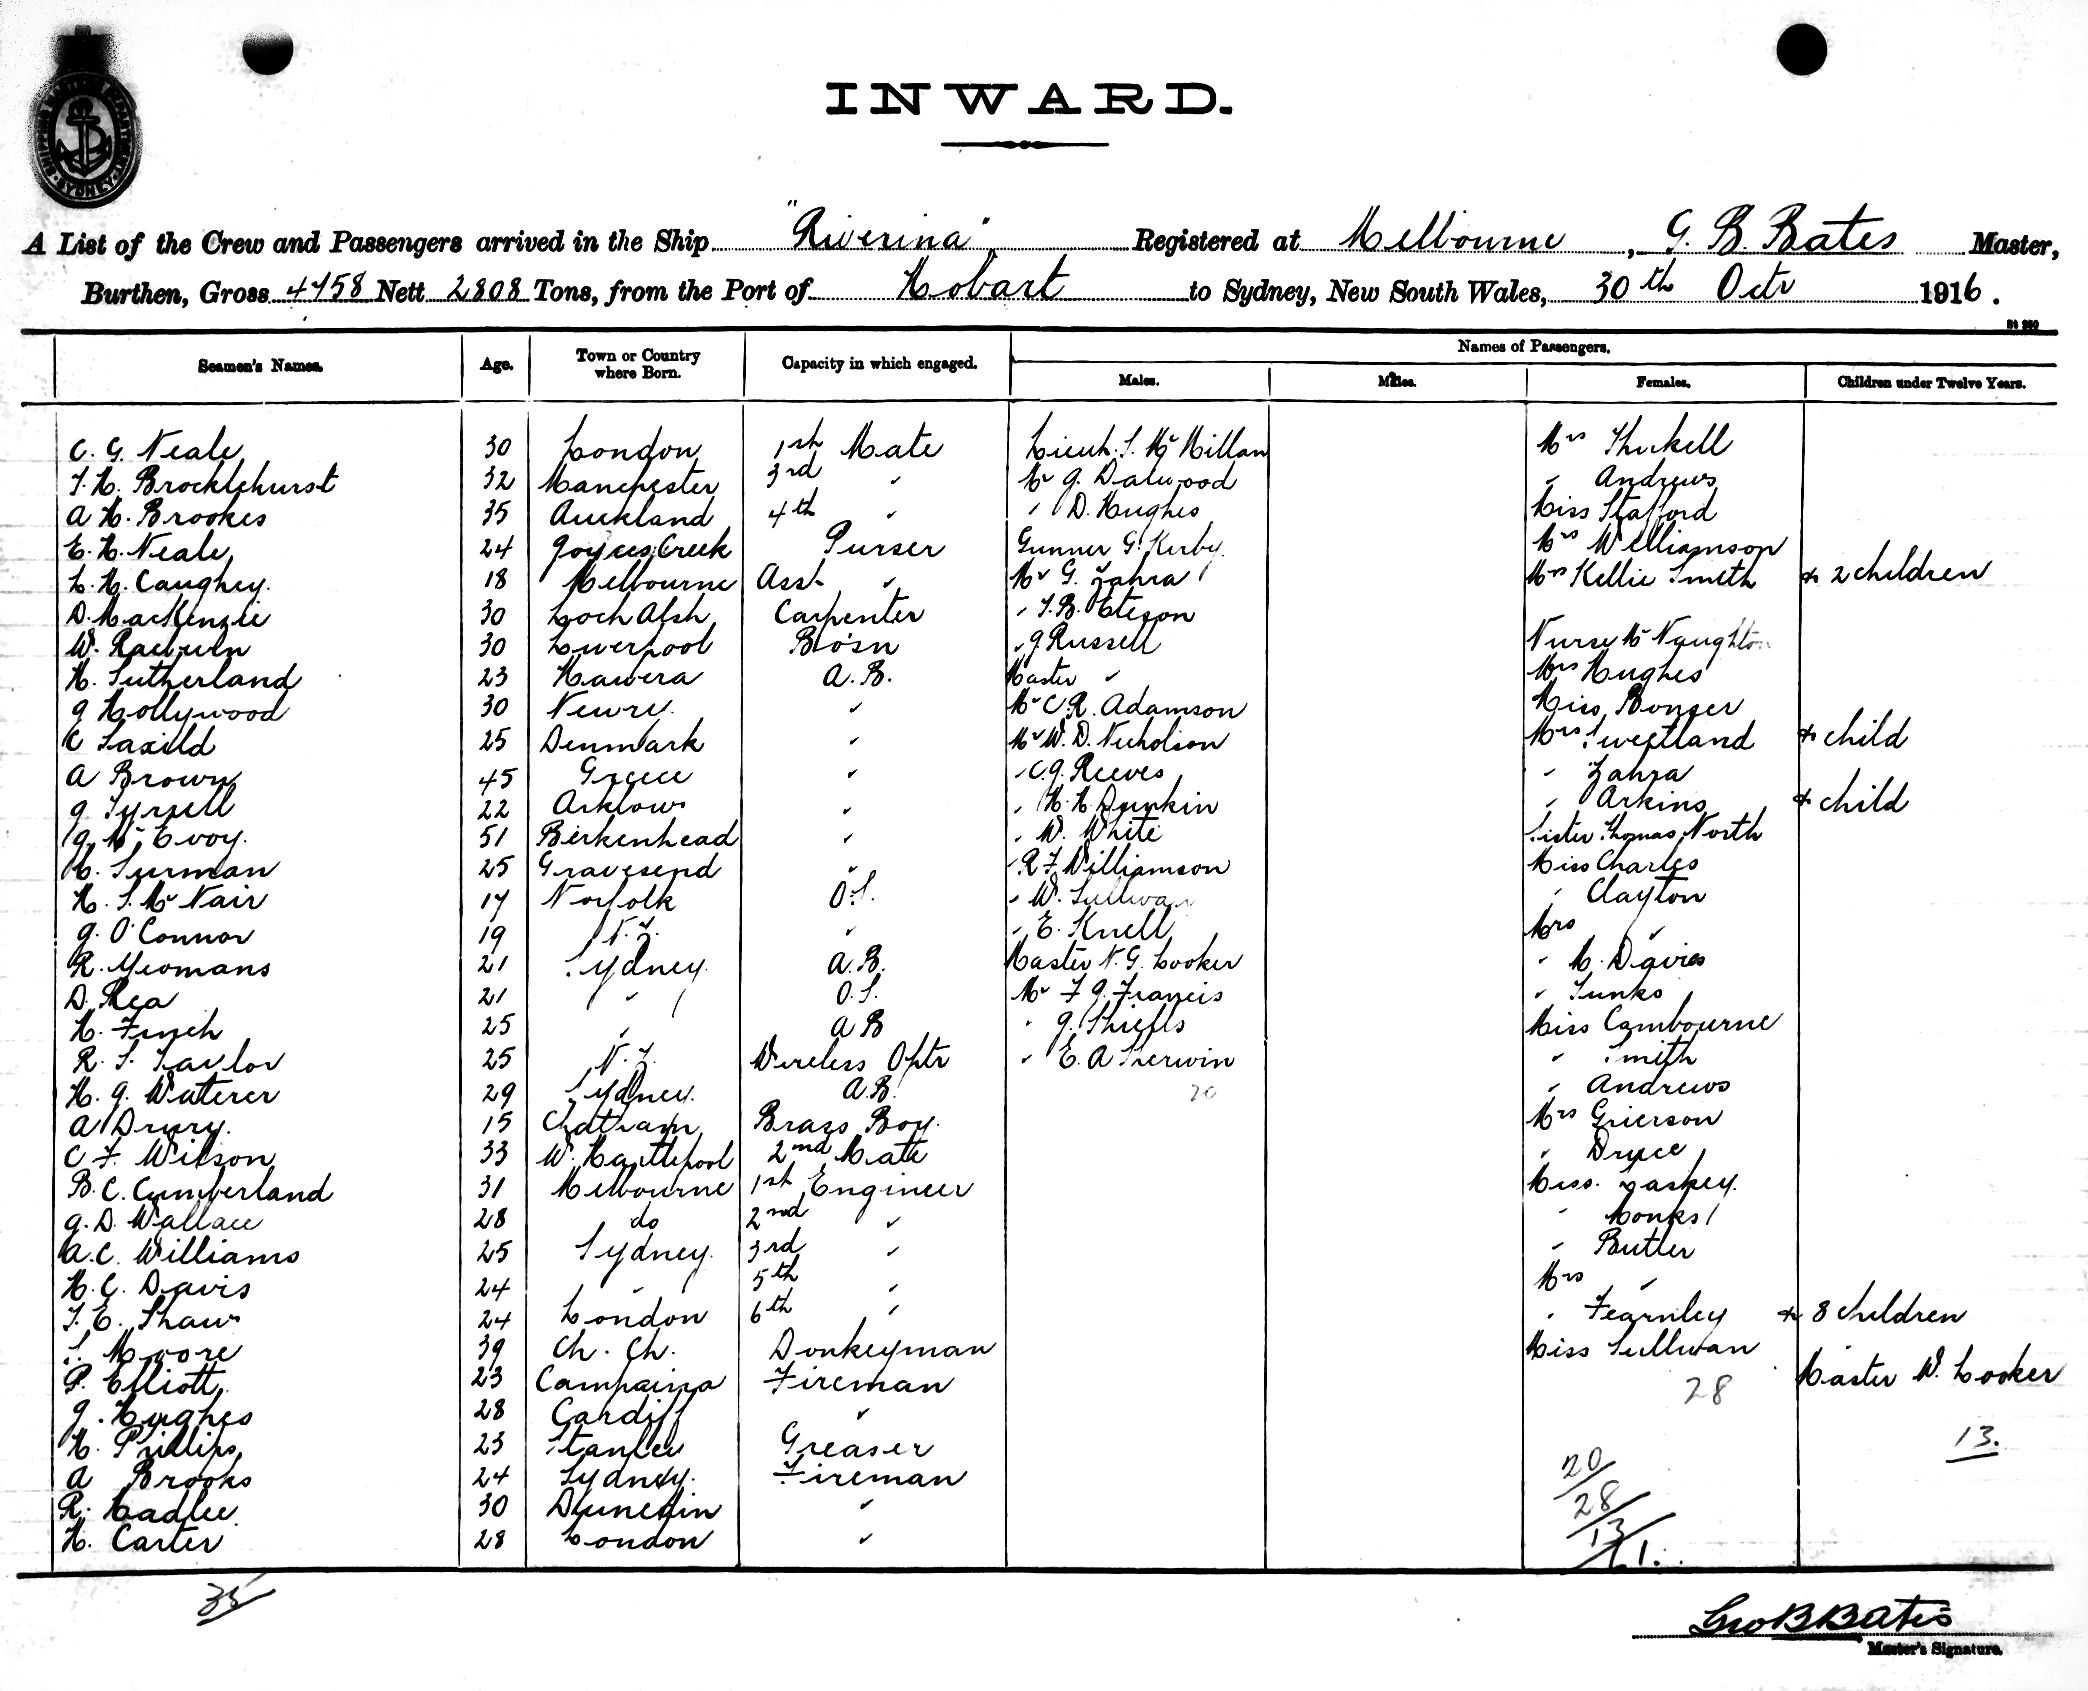 SHIPPING MASTER'S DEPARTMENT
SYDNEY
INWARD.
A List of the Crew and Passengers arrived in the Ship "Riverina" Registered at Melbourne, G. B. Bates Master,
Burthen, Gross 4758 Nett 2808 Tons, from the Port of Hobart to Sydney, New South Wales, 30th Octr 1916.
Seamen's Names. Age. Town or Country where Born. Capacity in which engaged. Names of Passengers.
Males. Males. Females. Children under Twelve Years.
C. G. Neale 30 London 1st Mate Lieut. S. McMillan Mrs Thirkell
T. H. Brocklehurst 32 Manchester 3rd " Mr J. Dalwood " Andrews
A H. Brookes 35 Auckland 4th " " D. Hughes Miss Stafford
E. H. Neale 24 Joyces Creek Purser Gunner G. Kirby Mrs Williamson
L. H. Caughey. 18 Melbourne Asst " Mr G. Zahra Mrs Kellie Smith & 2 children
D. MacKenzie 30 Loch Alsh Carpenter " T. B. Eteson
W. Raeburn 30 Liverpool Bo'sn " J Russell Nurse McNaughton
H. Sutherland 23 Hawera A.B. Master " Mrs Hughes
J Hollywood 30 Newry. " Mr C. R. Adamson Miss Bonser
C Saxild 25 Denmark " Mr W. D. Nicholson Mrs Sweetland & child
A Brown 45 Greece " " C. J. Reeves " Zahra
J. Tyrrell 22 Arklow " " H. H. Dunkin " Arkins & child
J. McEvoy. 51 Birkenhead " " W. White Sister Thomas North
C. Surman 25 Gravesend " " R. F Williamson Miss Charles
H. S. McNair 17 Norfolk O.S. " W. Sullivan " Clayton
J. O'Connor 19 N.Z. " " E. Knell Mrs "
R. Yeomans 21 Sydney A.B. Master N. G. Looker " M. Davies
D. Rea 21 " O.S. Mr F J. Francis " Tunks
H. Finch 25 " A B " J. Shiells Miss Cambourne
R. S. Taylor 25 N.Z. Wireless Optr " E. A Sherwin " Smith
H. J. Waterer 29 Sydney. A.B. 20 " Andrews
A Drury. 15 Chatham Brass Boy. Mrs Grierson
C F. Wilson 33 W. Hartlepool 2nd Mate " Druce
B. C. Cumberland 31 Melbourne 1st Engineer Miss. Laskey.
J. D. Wallace 28 do 2nd " " Monks
A. C. Williams 25 Sydney. 3rd " " Butler
H. C. Davis 24 " 5th " Mrs "
T. E. Shaw 24 London 6th " " Fearnley & 8 children
S. Moore 39 Ch. Ch. Donkeyman Miss Sullivan
P. Elliott 23 Fireman 28 Master W. Looker
J. Hughes 28 Cardiff "
H. Phillips 23 Stanley Greaser 13.
A Brooks 24 Sydney. Fireman 20
R. Hadlee 30 Dunedin " 28
H. Carter 28 London " 13
61.
35
Geo B Bates
Master's Signature.